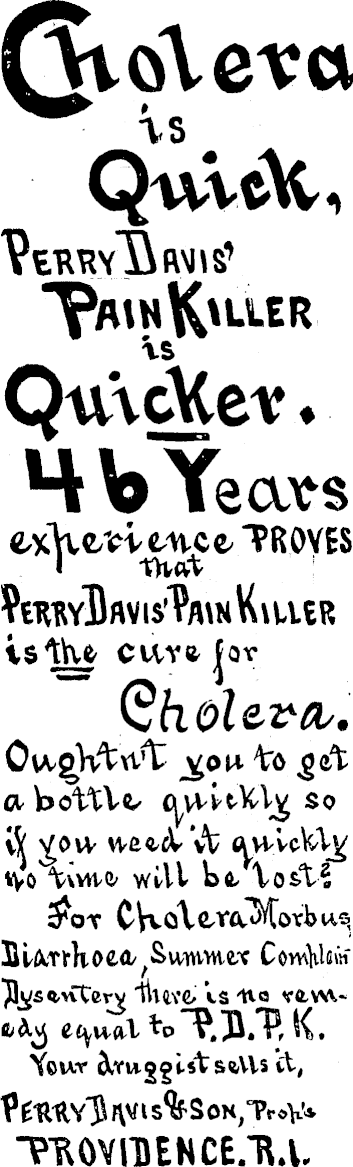 Cholera
is
Quick,
PERRY DAVIS'
PAIN KILLER
is
Quicker.
46 Years
experience PROVES
that
PERRY DAVIS' PAIN KILLER
is the cure for
Cholera.
Oughtn't you to get
a bottle quickly so
if you need it quickly
no time will be lost?
For Cholera Morbus,
Diarrhoea, Summer Complain
Dysentery there is no rem-
edy equal to P.D.P.K.
Your druggist sells it,
PERRY DAVIS & SON, Prop's
PROVIDENCE. R.I.